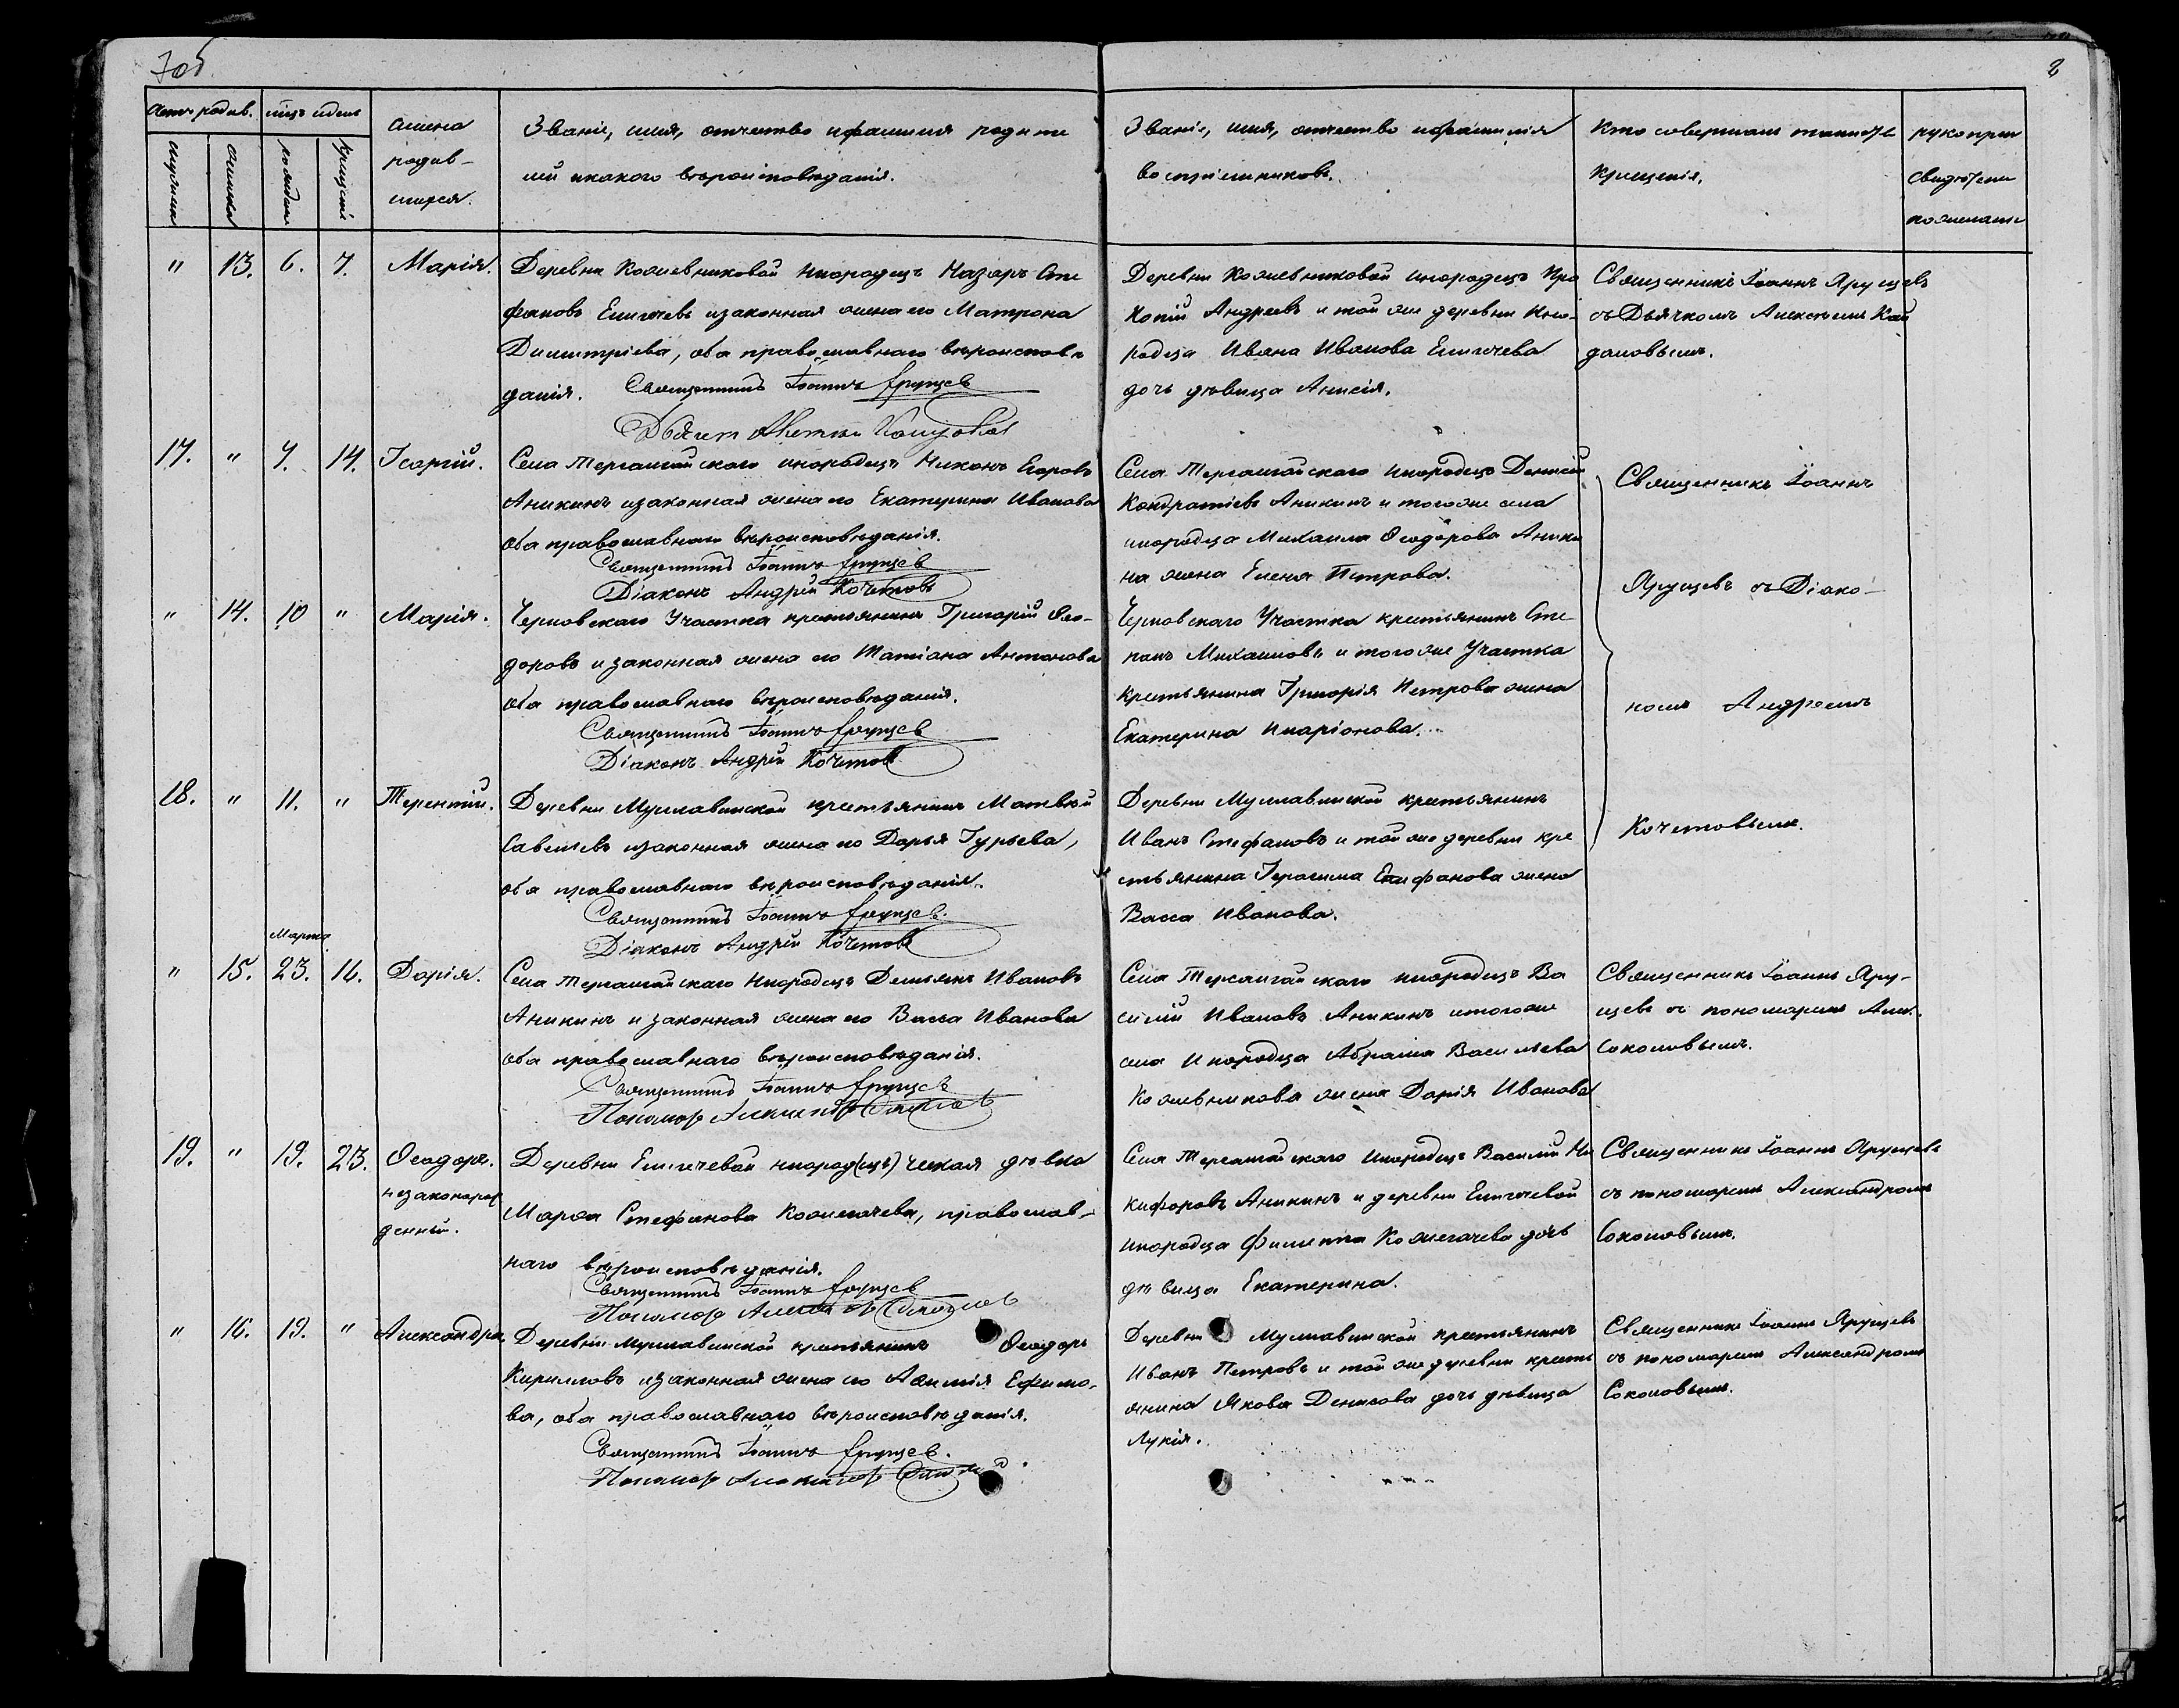 705
8
Счетъ родив. мѣсъ и день
Имена родив-
шихся.
Званіе, имя, отчество и фамилія родите
лей и какого вѣроисповѣданія.
Званіе, имя, отчество и фамилія
воспріемниковъ.
Кто совершалъ таинство
Крещенія.
рукопри
свидѣтел
по желанію
мужеска
женска
рожден
крещені
" 13. 6. 7. Марія.
Деревни Кожевниковой Инородецъ Назаръ Сте
фановъ Епигачевъ и законная жена его Матрона
Димитріева, оба православнаго вѣроисповѣ
данія. Священникъ Іоаннъ Ярущевъ
Деревни Кожевниковой инородецъ Про
копій Андреевъ и той же деревни Ино-
родца Ивана Иванова Епигачева
дочь дѣвица Анисія.
Священникъ Іоаннъ Ярущевъ
съ Дьячкомъ Алексѣемъ Кай
даловымъ.
17. " 7. 14. Георгій.
Села Тергаштайскаго инородецъ Никонъ Егоровъ
Аникинъ и законная жена его Екатерина Иванова
оба православнаго вѣроисповѣданія.
Священникъ Іоаннъ Ярущевъ
Діаконъ Андрей Кочетовъ
Села Тергаштайскаго инородецъ
Кондратіевъ Аникинъ и того же села
инородца Михаила Ѳеодорова Аники
на жена Елена Петрова.
Священникъ Іоаннъ
Ярущевъ съ Діако-
номъ Андреемъ
Кочетовымъ.
" 14. 10 " Марія.
Черновскаго Участка крестьянинъ Григорій Ѳео-
доровъ и законная жена его Татіана Антонова
оба православнаго вѣроисповѣданія.
Священникъ Іоаннъ Ярущевъ
Діаконъ Андрей Кочетовъ
Черновскаго Участка крестьянинъ Сте
панъ Михаиловъ и того же Участка
крестьянина Григорія Петрова жена
Екатерина Иларіонова.
18. " 11. " Терентій.
Деревни Муллавинской крестьянинъ Матвѣй
Савельевъ и законная жена его Дарья Гурьева,
оба православнаго вѣроисповѣданія.
Священникъ Іоаннъ Ярущевъ.
Діаконъ Андрей Кочетовъ
Деревни Муллавинской крестьянинъ
Иванъ Стефановъ и той же деревни кре
стьянина Герасима Епифанова жена
Васса Иванова.
Марта
" 15. 23. 16. Дарія.
Села Тергаштайскаго Инородецъ Демьянъ Ивановъ
Аникинъ и законная жена его Васса Иванова
оба православнаго вѣроисповѣданія.
Священникъ Іоаннъ Ярущевъ
Пономарь Александръ Соколовъ
Села Тергаштайскаго инородецъ Ва
силій Ивановъ Аникинъ и того же
села Инородца Абрама Васильева
Кожевникова жена Дарія Иванова
Священникъ Іоаннъ Яру-
щевъ съ пономаремъ Алек.
Соколовымъ.
19. " 19. 23. Ѳеодоръ.
незаконорож
денный.
Деревни Епигачевой инород(цъ)ческая дѣвка
Марѳа Стефанова Кожегачева, православ-
наго вѣроисповѣданія.
Священникъ Іоаннъ Ярущевъ
Пономарь Александръ Соколовъ
Села Тергаштайскаго Инородецъ Василій Ни
кифоровъ Аникинъ и деревни Епигачевой
инородца Филиппа Кожегачева дочь
дѣвица Екатерина.
Священникъ Іоаннъ Ярущевъ
съ пономаремъ Александромъ
Соколовымъ.
" 16. 19. " Александра.
Деревни Муллавинской крестьянинъ Ѳеодоръ
Кирилловъ и законная жена его Акилія Ефимо-
ва, оба православнаго вѣроисповѣданія.
Священникъ Іоаннъ Ярущевъ.
Пономарь Александръ Соколовъ
Деревни Муллавинской крестьянинъ
Иванъ Петровъ и той же деревни кресть
янина Якова Денисова дочь дѣвица
Лукія.
Священникъ Іоаннъ Ярущевъ
съ пономаремъ Александромъ
Соколовымъ.